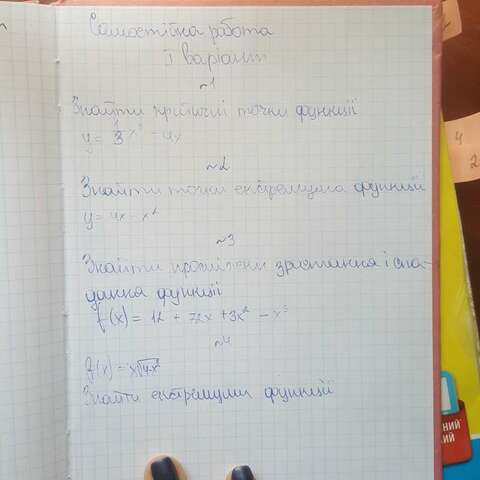 Самостійна работа
I варіант
~1
Знайти критичні точки функції
~2
Знайти точки екстремума функції
y = 4x - x²
~3
Знайти проміжки зростання і спа-
дання функції
f(x) = 12 + 72x + 3x² - x³
~4
f(x) =
Знайти екстремуми функції
4
2
НИЙ
КИЙ